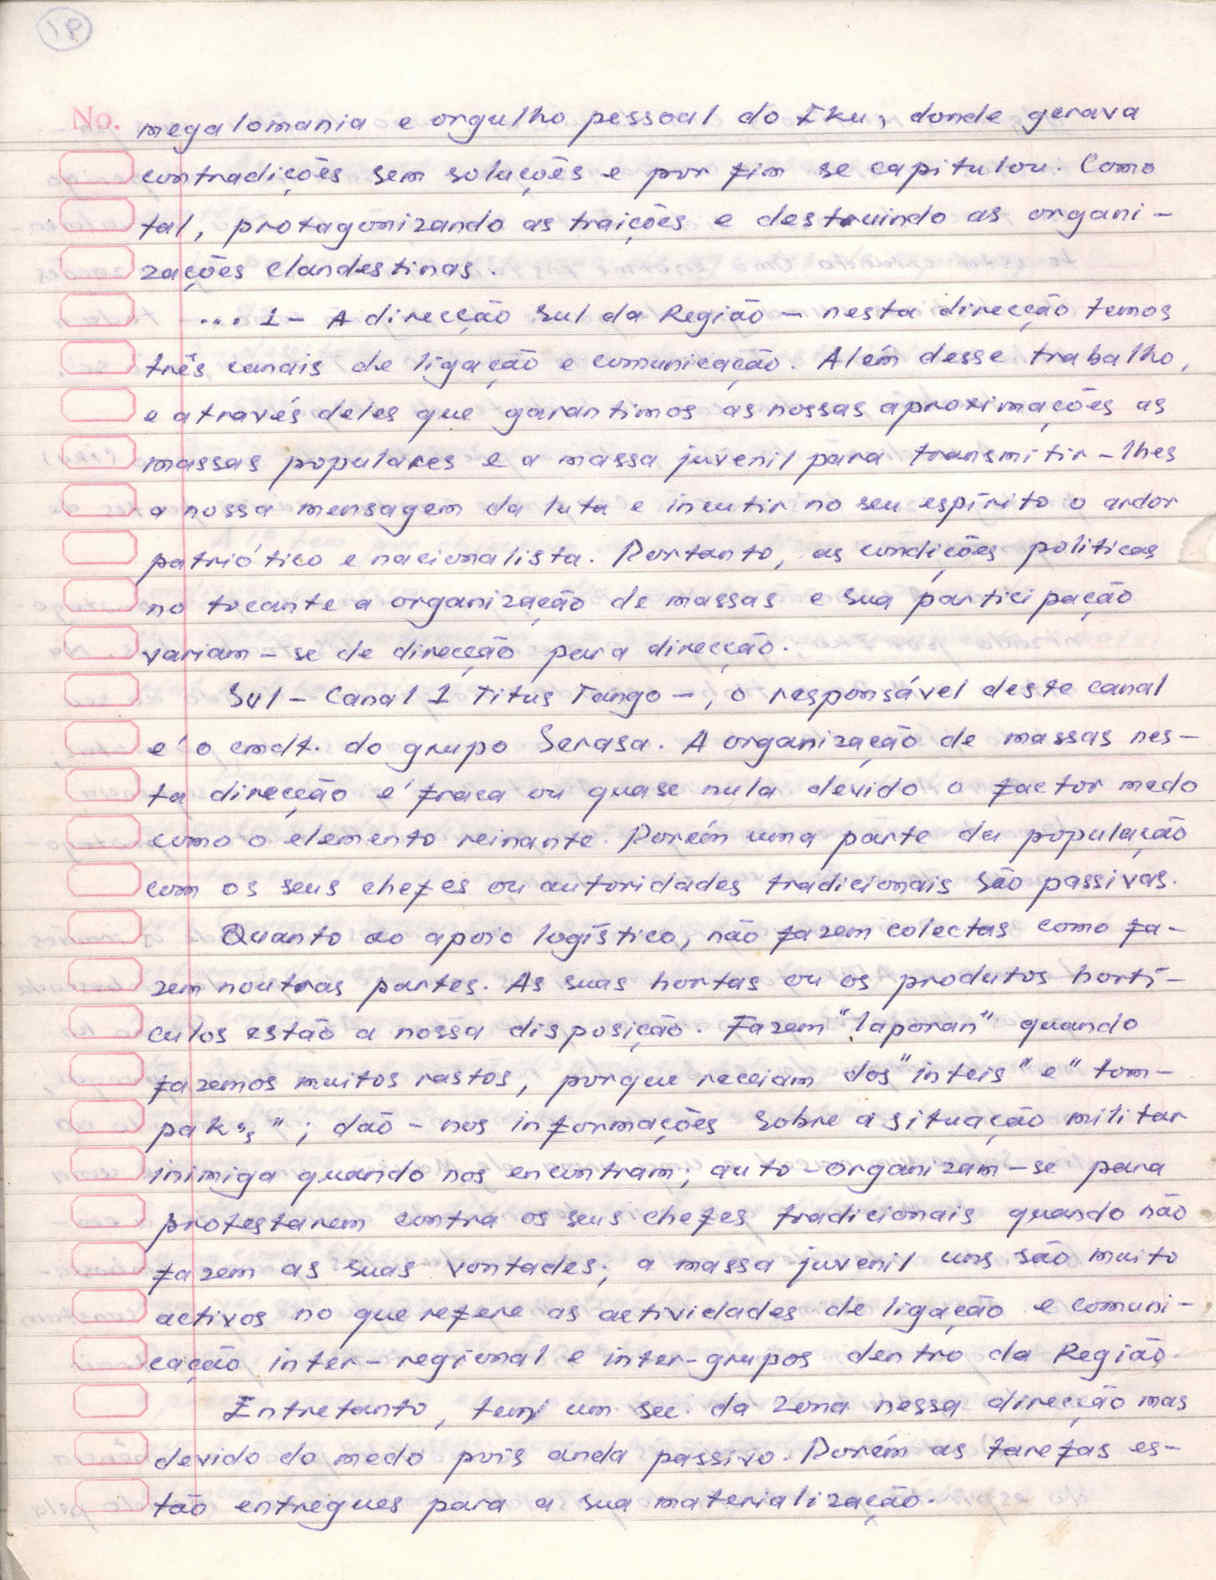 19
No. megalomania e orgulho pessoal do Eku, donde gerava
contradições sem soluções e por fim se capitulou. Como
tal, protagonizando as traições e destruindo as organi-
zações clandestinas.
... 1 - A direcção Sul da Região - nesta direcção temos
três canais de ligação e comunicação. Além desse trabalho,
e através deles que garantimos as nossas aproximações as
massas populares e a massa juvenil para transmitir-lhes
a nossa mensagem da luta e incutir no seu espírito o ardor
patriótico e nacionalista. Portanto, as condições politicas
no tocante a organização de massas e sua participação
variam-se de direcção para direcção.
Sul - Canal 1 Titus Tango -, o responsável deste canal
e' o cmdt. do grupo Serasa. A organização de massas nes-
ta direcção e' fraca ou quase nula devido o factor medo
como o elemento reinante. Porém uma parte da população
com os seus chefes ou autoridades tradicionais são passivas.
Quanto ao apoio logístico, não fazem colectas como fa-
zem noutras partes. As suas hortas ou os produtos hortí-
culos estão a nossa disposição. Fazem "laporan" quando
fazemos muitos rastos, porque receiam dos "inteis" e "tom-
pak"s"; dão-nos informações sobre a situação militar
inimiga quando nos encontram; auto-organizam-se para
protestarem contra os seus chefes tradicionais quando não
fazem as suas vontades; a massa juvenil uns são muito
activos no que refere as actividades de ligação e comuni-
cação inter-regional e inter-grupos dentro da Região.
Entretanto, tem um sec. da Zona nessa direcção mas
devido do medo pois anda passivo. Porém as tarefas es-
tão entregues para a sua materialização.